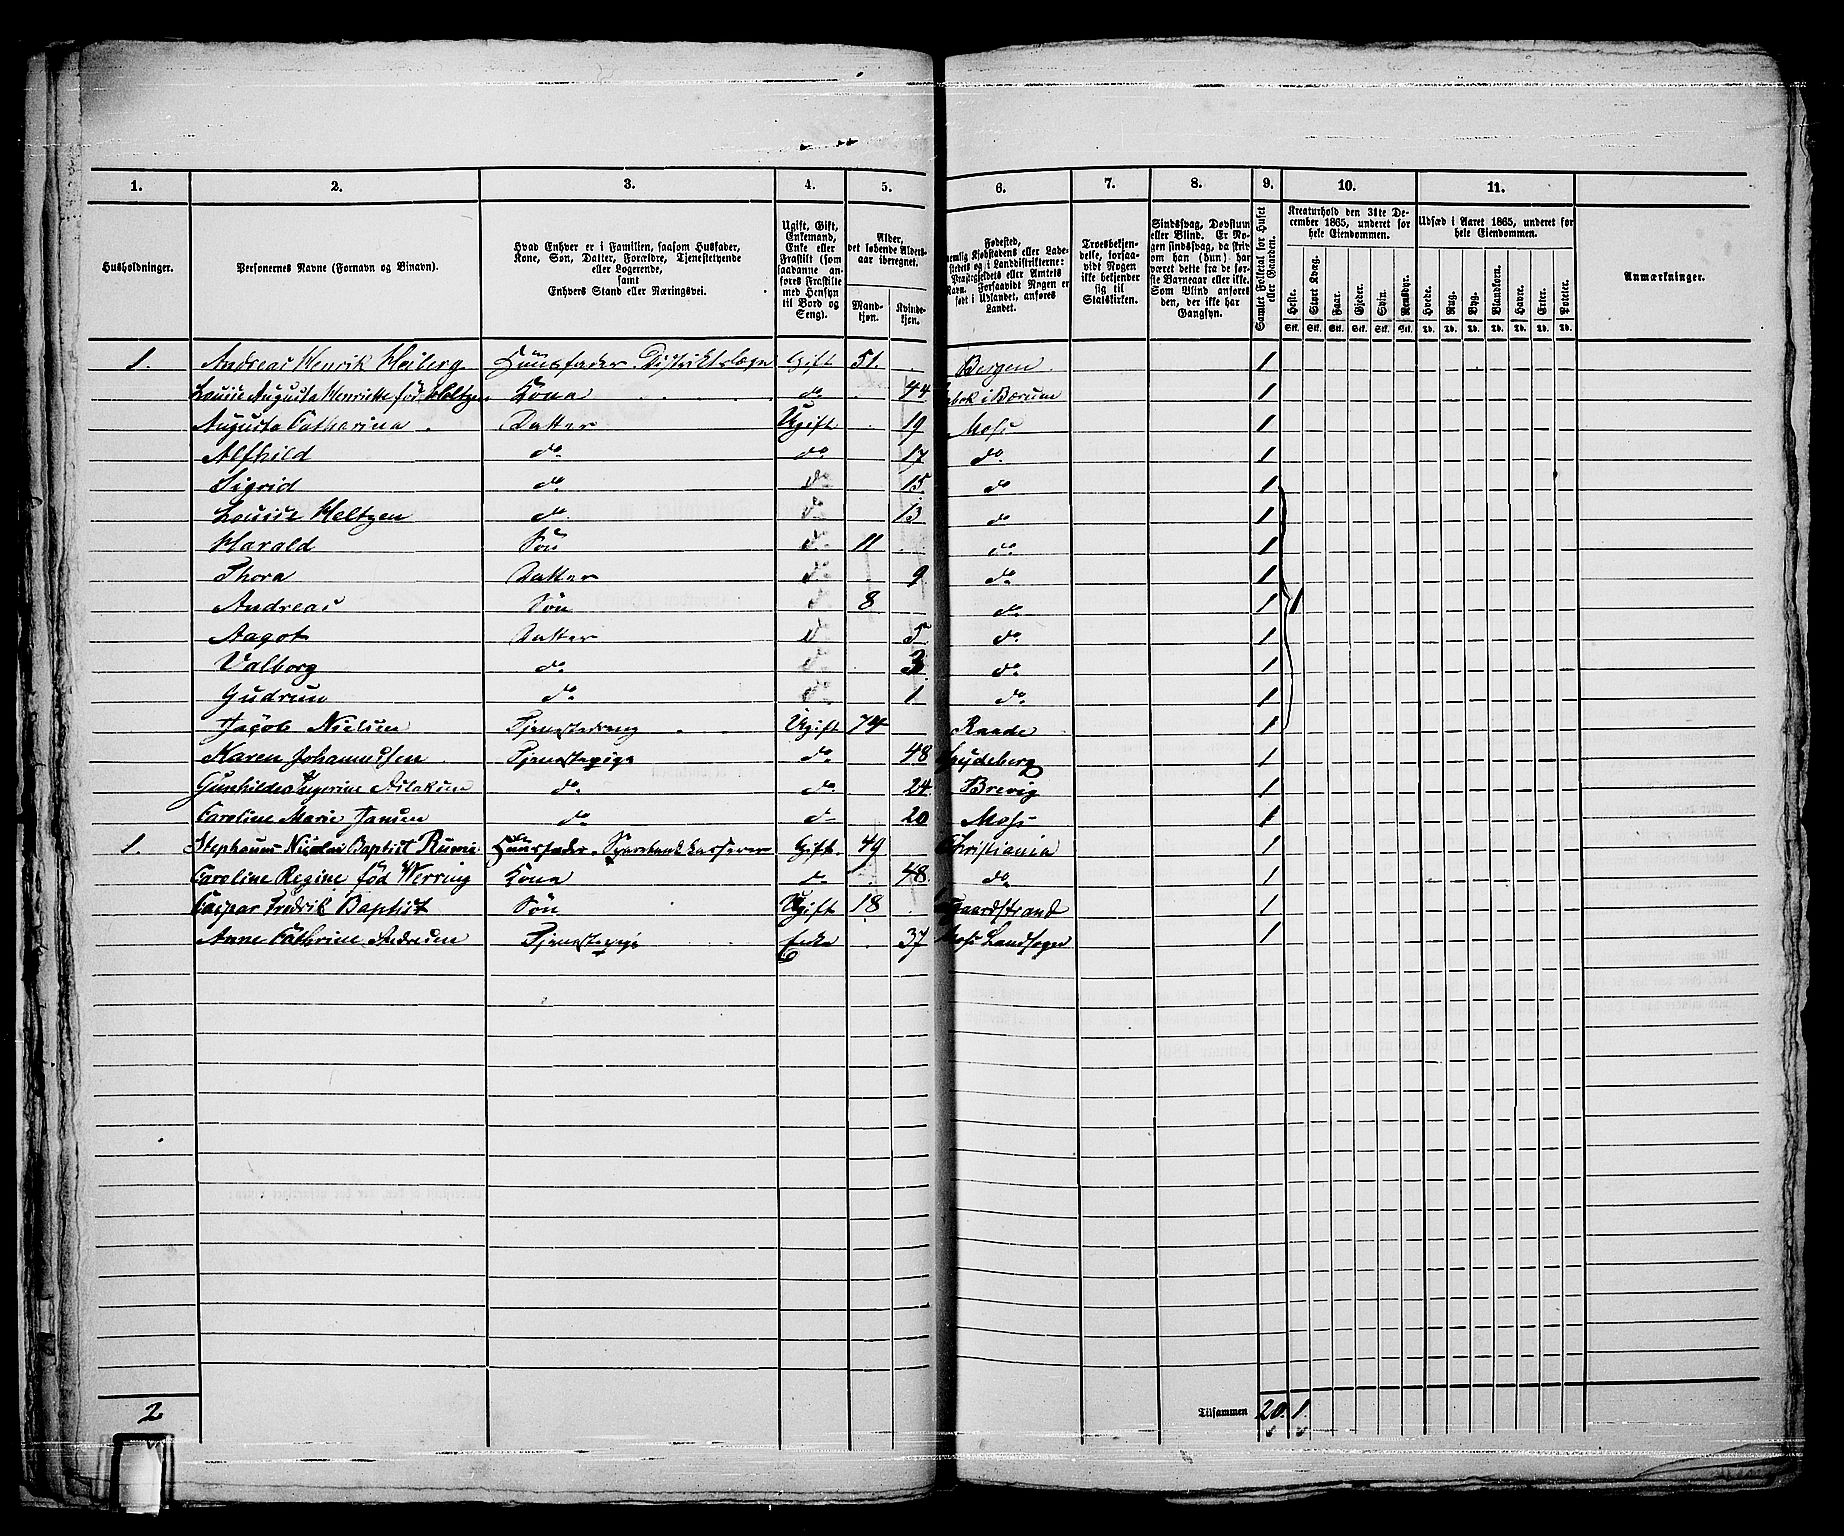 1. 2. 3. 4. 5. 6. 7. 8. 9. 10. 11.
Husholdninger.
Personernes Navne (Fornavn og Binavn).
Hvad Enhver er i Familien, saasom Husfader, Kone, Søn, Datter, Forældre, Tjenestetyende eller Logerende, samt Enhvers Stand eller Næringsvei.
Ugift, Gift, Enkemand, Enke eller Fraskilt (som saadanne anføres Fraskilte med Hensyn til Bord og Seng).
Alder, det løbende Aldersaar iberegnet.
Mandkjøn. Kvindekjøn.
Fødested, nemlig Kjøbstadens eller Ladestedets og i Landdistrikterne: Præstegjeldets eller Amtets Navn. Forsaavidt Nogen er født i Udlandet, anføres Landet.
Troesbekjendelse, forsaavidt Nogen ikke bekjender sig til Statskirken.
Sindssvag, Døvstum eller Blind. Er Nogen sindssvag, da skrives om han (hun) har været dette fra de første Barneaar eller ikke. Som Blind ansøres den, der ikke har Gangsyn.
Samlet Folketal for Huset eller Gaarden.
Kreaturhold den 31te December 1865, underet for hele Eiendommen.
Heste. Stort Kvæg. Faar. Gjeder. Svin. Rensdyr.
Stk. Stk. Stk. Stk. Stk. Stk.
Udsæd i Aaret 1865, underet for hele Eiendommen.
Hvede. Rug. Byg. Blandkorn. Havre. Erter. Poteter.
Td. Td. Td. Td. Td. Td. Td.
Anmærkninger.
1. Andreas Henrik Heiberg Huusfader. Distriktslæge Gift 51. Bergen 1
Louise Augusta Henriette fød Heltzen Kona do 44 i Bærum 1
Augusta Catharina Datter Ugift 19 Moss 1
Alfhild do do 17 do 1
Sigrid do do 15 do 1
Louise Heltzen do do 13 do 1
Harald Søn do 11 do 1
Thora Datter do 9 do 1
Andreas Søn do 8 do 1 1
Aagot Datter do 5 do 1
Valborg do do 3 do 1
Gudrun do do 1 do 1
Jacob Nielsen Tjenestedreng Ugift 74 Raade 1
Karen Johannessen Tjenestepige do 48 Spydeberg 1
Gunhilde Ingerine Aslaksen do do 24 Brevig 1
Caroline Marie Jansen do do 20 Moss 1
1. Nicolai Baptist Huusfader. Sparebankkasserer Gift 49 Christiania 1
Caroline Regine fød Werring Kona do 48 do 1
Caspar Fredrik Baptist Søn Ugift 18 1
Anne Cathrine Andersen Tjenestepige Enke 37 Moss Landsogn 1
2
Tilsammen 20. 1.